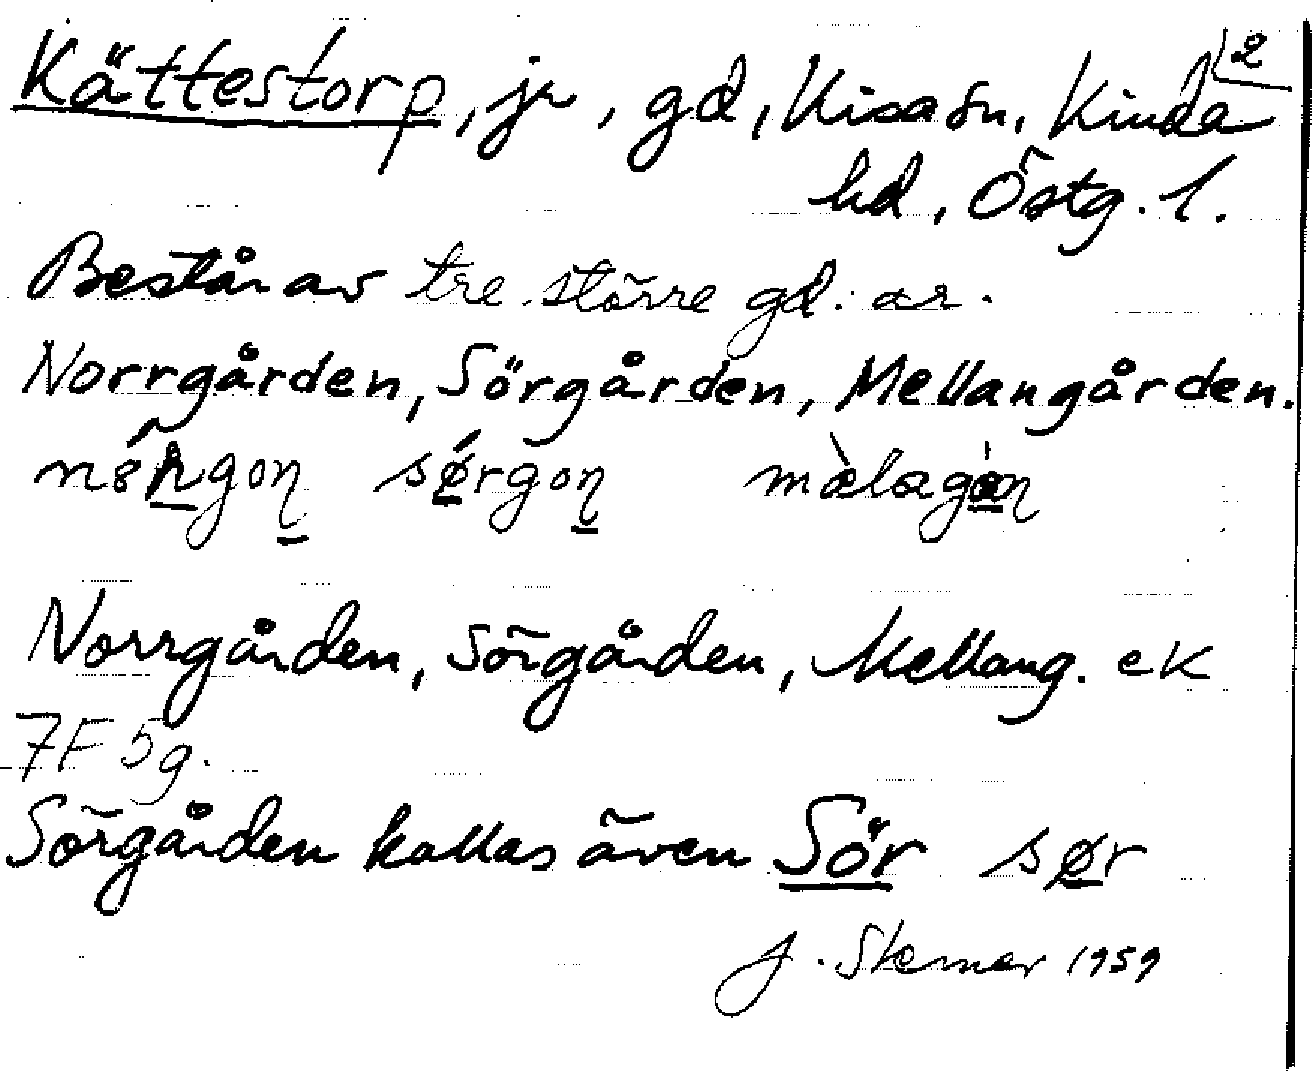 2
Kättestorp, jr, gd, Kisa sn, Kinda
hd, Östg. l.
Består av tre större gd. ar.
Norrgården, Sörgården, Mellangården.
sørgoŋ màlagàŋ
Norrgården, Sörgården, Mellang. ek
7F 5g.
Sörgården kallas även Sör sør
J. Stemar 1959